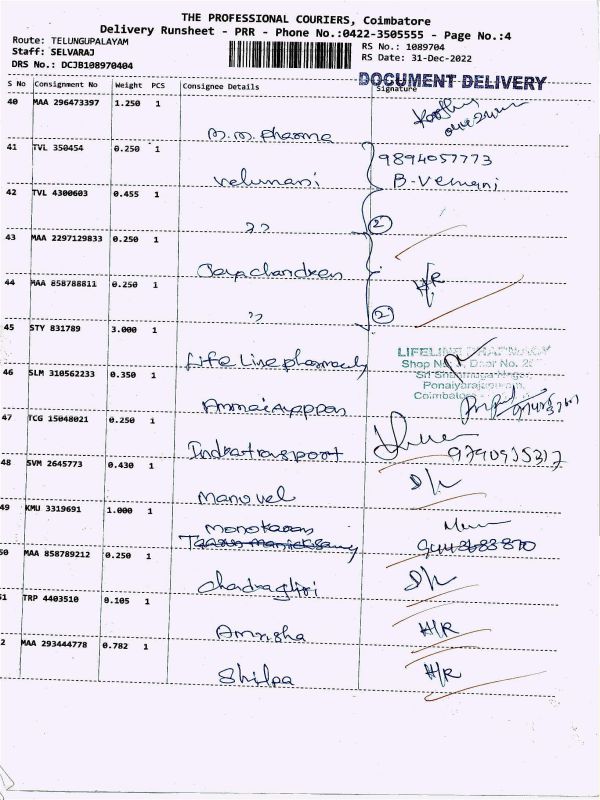 THE PROFESSIONAL COURIERS, Coimbatore
Delivery Runsheet - PRR - Phone No.:0422-3505555 - Page No.:4
Route: TELUNGUPALAYAM
Staff: SELVARAJ
DRS No.: DCJB108970404
RS No.: 1089704
RS Date: 31-Dec-2022
DOCUMENT DELIVERY
S No Consignment No Weight PCS Consignee Details Signature
40 MAA 296473397 1.250 1
m.m. pharma
41 TVL 350454 0.250 1
velumani
9894057773
B-Vemani
42 TVL 4300603 0.455 1
,, 2
43 MAA 2297129833 0.250 1
Jayachandran
H/R
44 MAA 858788811 0.250 1
,, 2
45 STY 831789 3.000 1
Life Line pharmacy
LIFELINE PHARMACY
Shop No.
Door No.
Ponaiyarajapuram,
Coimbatore
46 SLM 310562233 0.350 1
Ammaiyappan
47 TCG 15048021 0.250 1
Indratransport
48 SVM 2645773 0.430 1
Manuvel
D/L
49 KMU 3319691 1.000 1
Monokaran
50 MAA 858789212 0.250 1
D/L
51 TRP 4403510 0.105 1
Amrisha H/R
2 MAA 293444778 0.782 1
Shilpa H/R